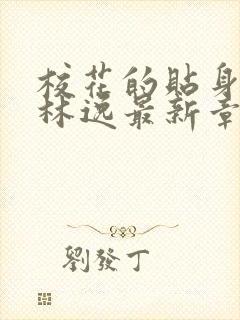 校花的貼身
林逸最新章
劉發丁